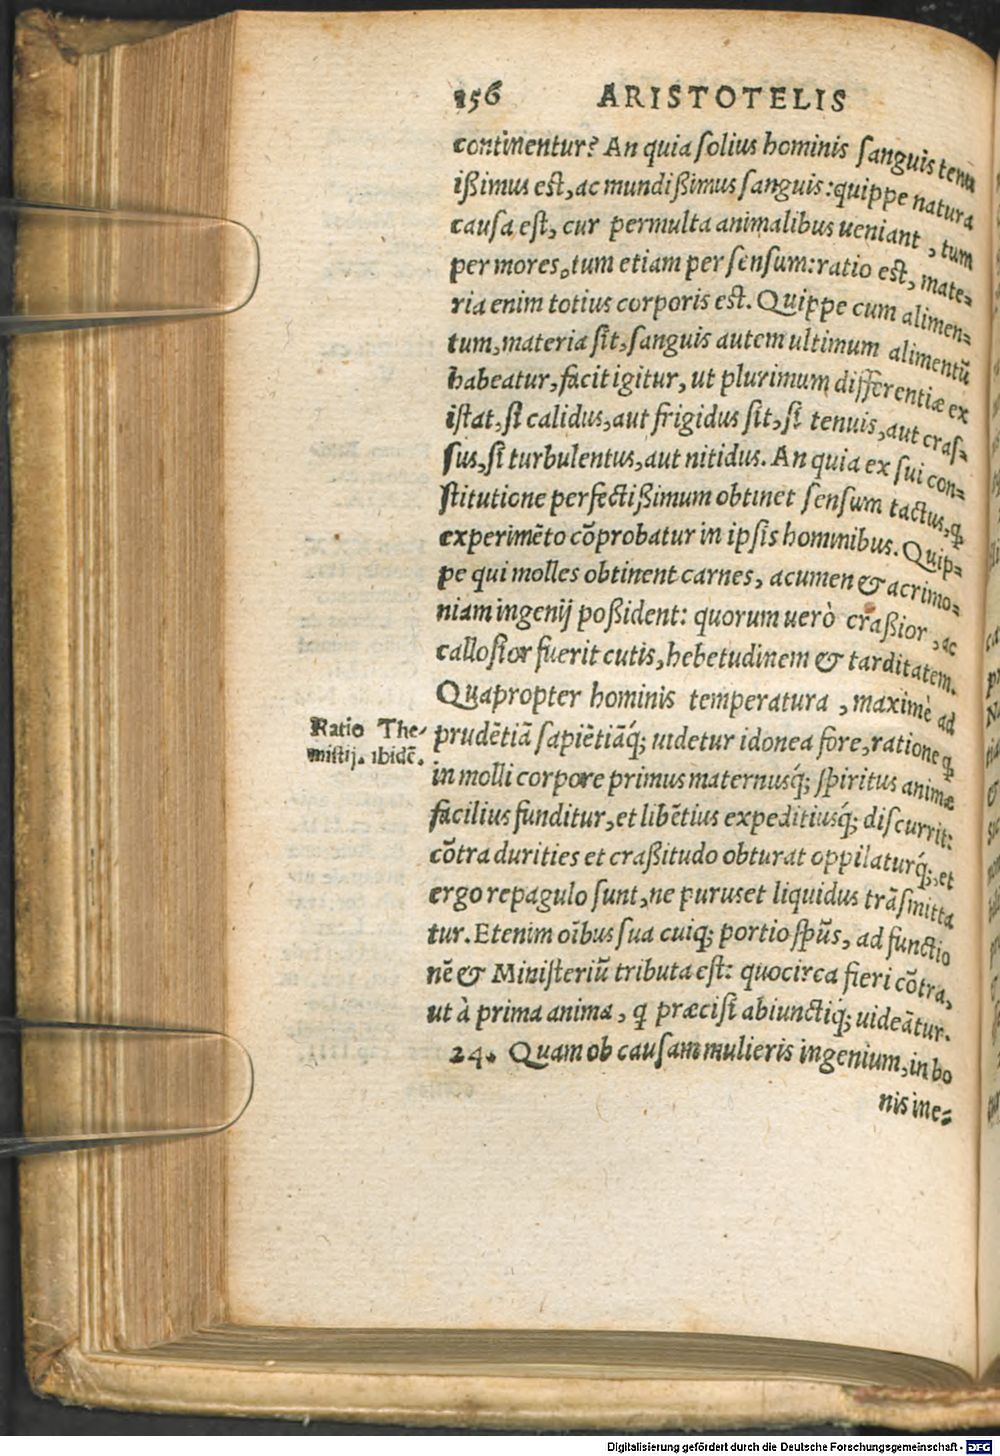 156 ARISTOTELIS
continentur? An quia ſolius hominis ſanguis tenu
ißimus eſt, ac mundißimus ſanguis: quippe natura
cauſa eſt, cur permulta animalibus ueniant, tum
per mores, tum etiam per ſenſum: ratio eſt, mate-
ria enim totius corporis eſt. Quippe cum alimen-
tum, materia ſit, ſanguis autem ultimum alimentũ
habeatur, facit igitur, ut plurimum differentiæ ex
iſtat, ſi calidus, aut frigidus ſit, ſi tenuis, aut craſ-
ſus, ſi turbulentus, aut nitidus. An quia ex ſui con-
ſtitutione perfectißimum obtinet ſenſum tactus, ꝙ
experimẽto cõprobatur in ipſis hominibus. Quip-
pe qui molles obtinent carnes, acumen & acrimo-
niam ingenij poßident: quorum uerò craßior, ac
calloſior fuerit cutis, hebetudinem & tarditatem.
Quapropter hominis temperatura, maximè ad
Ratio The-
miſtij. ibidẽ.
prudẽtiã ſapiẽtiãq́; uidetur idonea fore, ratione ꝙ
in molli corpore primus maternusq́; ſpiritus animæ
facilius funditur, et libẽtius expeditiusq́; diſcurrit:
cõtra durities et craßitudo obturat oppilaturq́;, et
ergo repagulo ſunt, ne purus et liquidus trãſmitta
tur. Etenim oĩbus ſua cuiq; portio ſpũs, ad functio
nẽ & Miniſteriũ tributa eſt: quocirca fieri cõtra,
ut à prima anima, ꝙ præciſi abiunctiq́; uideãtur.
24. Quam ob cauſam mulieris ingenium, in bo
nis ine-
Digitalisierung gefördert durch die Deutsche Forschungsgemeinschaft - DFG